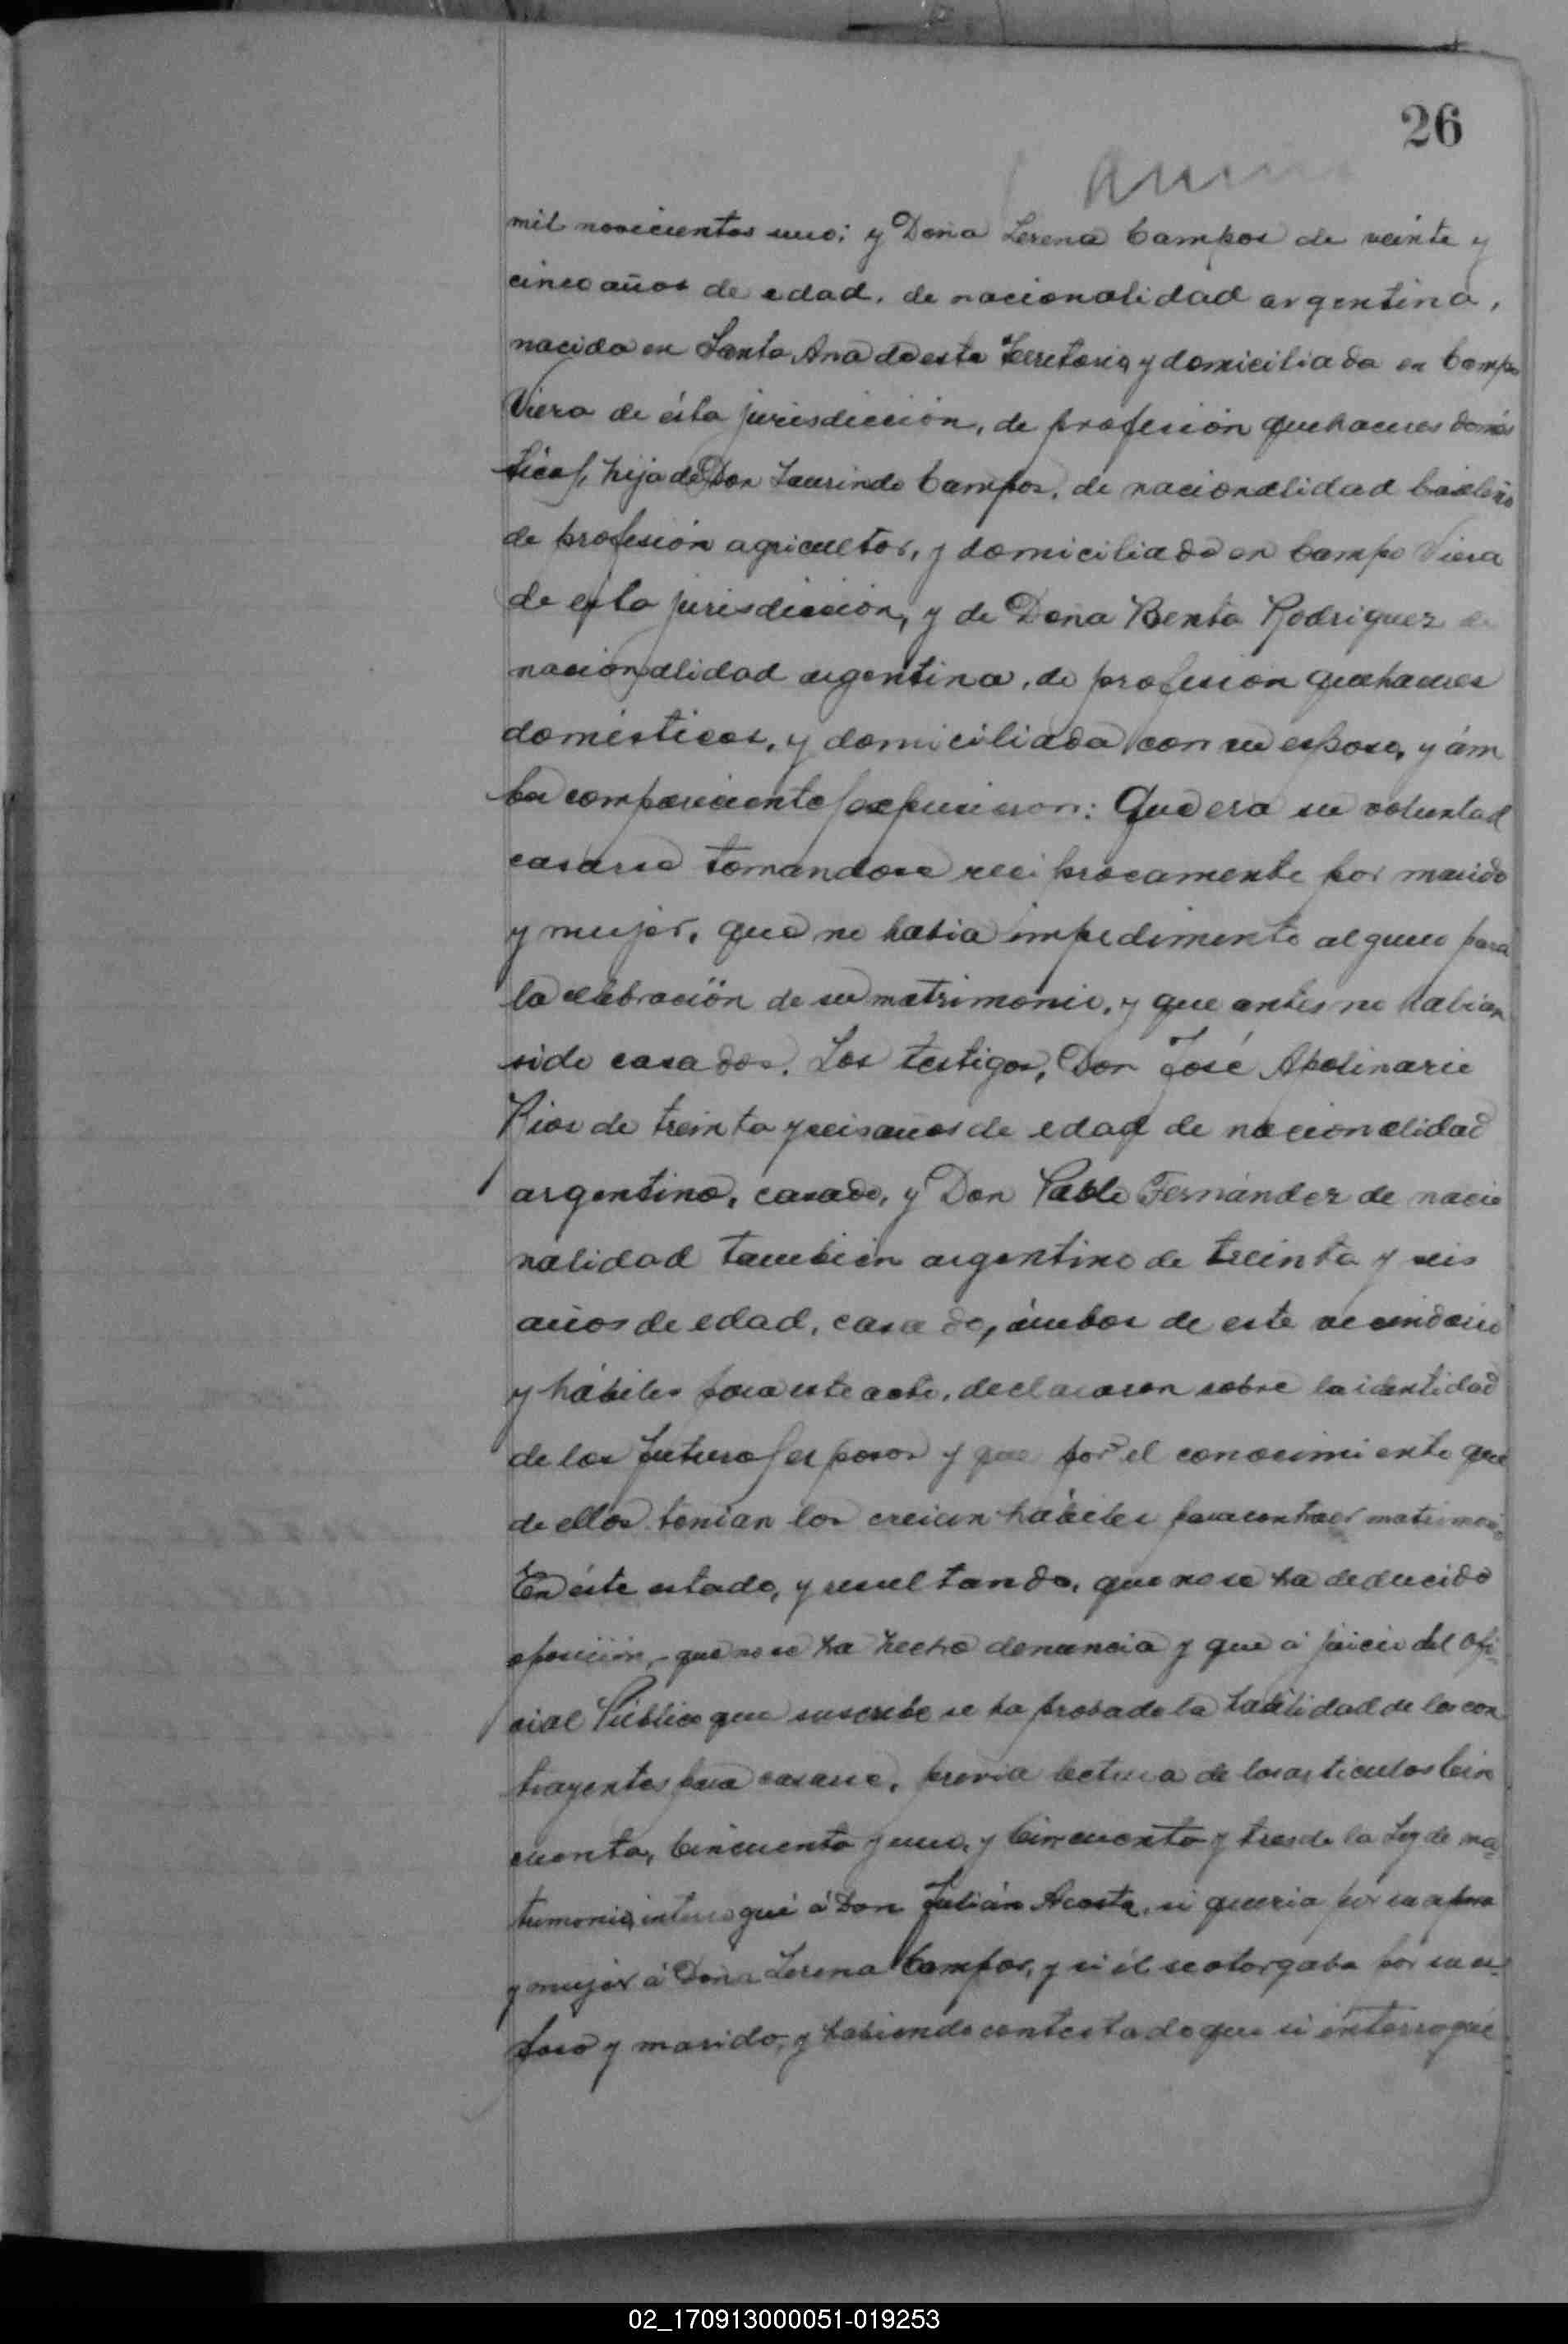 26
mil novecientos uno; y Doña Lerena Campos de veinte y
cinco años de edad, de nacionalidad argentina,
nacida en Santa Ana de este Territorio y domiciliada en Campo
Viera de ésta jurisdicción, de profesión quehaceres domés
ticos, hija de Don Laurindo Campos, de nacionalidad brasileño
de profesión agricultor, y domiciliado en Campo Viera
de esta jurisdicción, y de Doña Benta Rodriguez de
nacionalidad argentina, de profesión quehaceres
domésticos, y domiciliada con su esposo, y ám
bos comparecientes expusieron: Que era su voluntad
casarse tomandose reciprocamente por marido
y mujer, que no habia impedimento alguno para
la celebración de su matrimonio, y que antes no habian
sido casados. Los testigos, Don José Apolinario
Rios de treinta y seis años de edad de nacionalidad
argentino, casado, y Don Pablo Fernández de nacio
nalidad tambien argentino de treinta y seis
años de edad, casado, ámbos de este vecindario
y hábiles para este acto, declararon sobre la identidad
de los futuros esposos y que por el conocimiento que
de ellos tenian los creian hábiles para contraer matrimonio
En éste estado, y resultando, que no se ha deducido
oposición, que no se ha hecho denuncia y que á juicio del Ofi-
cial Público que suscribe se ha probado la habilidad de los con
trayentes para casarse, previa lectura de los articulos Cin
cuenta, Cincuenta y uno, y Cincuenta y tres de la Ley de ma-
trimonio, interrogué á Don Julián Acosta, si queria por su esposa
y mujer á Doña Lerena Campos, y si él se otorgaba por su es-
poso y marido, y habiendo contestado que si interrogué
02_170913000051-019253